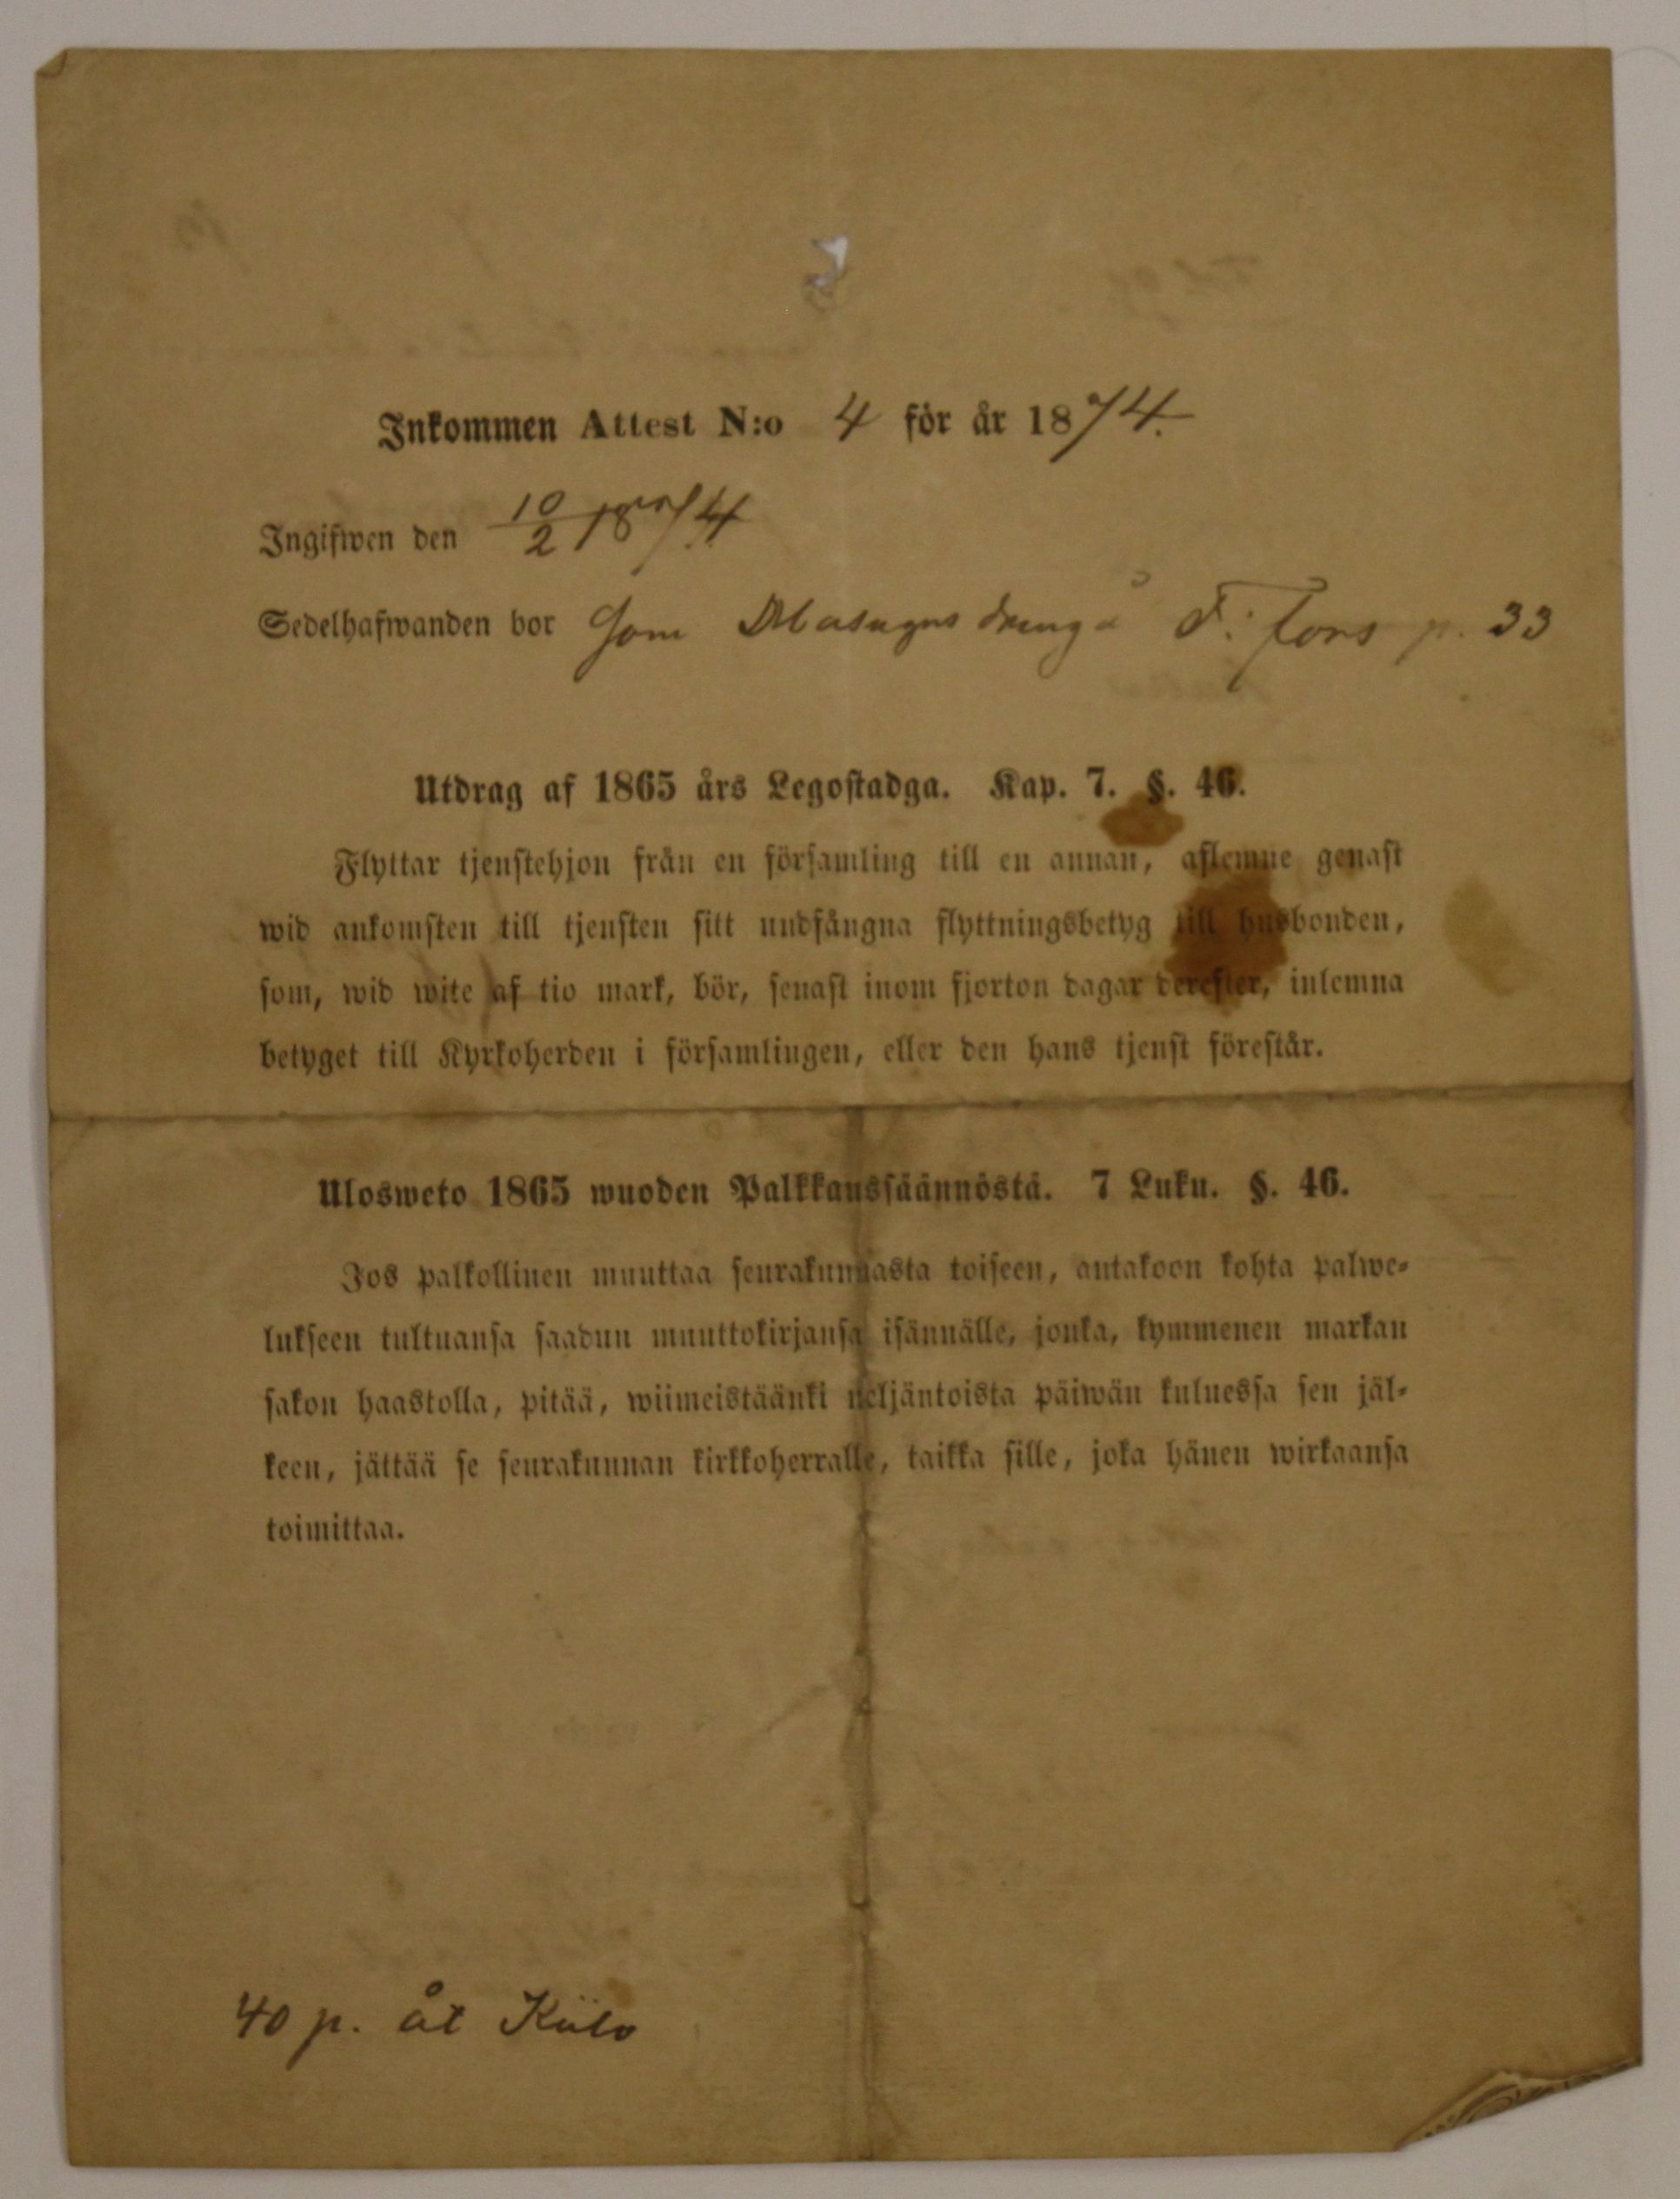 Inkommen Attest N:o 4 för år 1874.
Ingifwen den 10/2 1874
Sedelhafwanden bor som Masugnsdräng å F:fors p. 33
Utdrag af 1865 års Legostadga. Kap. 7. §. 46.
Flyttar tjenstehjon från en församling till en annan, aflemne genast
wid ankomsten till tjensten sitt undfångna flyttningsbetyg till husbonden,
som, wid wite af tio mark, bör, senast inom fjorton dagar derefter, inlemna
betyget till Kyrkoherden i församlingen, eller den hans tjenst förestår.
Ulosweto 1865 wuoden Palkkaussäännöstä. 7 Luku. §. 46.
Jos palkollinen muuttaa seurakunnasta toiseen, antakoon kohta palwe-
lukseen tultuansa saadun muuttokirjansa isännälle, jonka, kymmenen markan
sakon haastolla, pitää, wiimeistäänki neljäntoista päiwän kuluessa sen jäl-
keen, jättää se seurakunnan kirkkoherralle, taikka sille, joka hänen wirkaansa
toimittaa.
40 p. åt